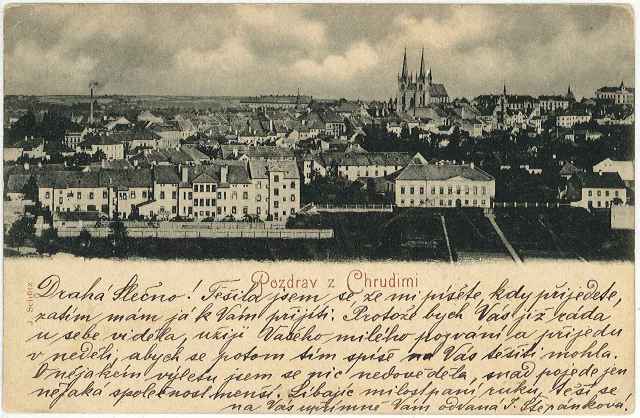 Pozdrav z Chrudimi
Drahá Slečno! Těšila jsem se že mi píšete, kdy přijedete,
zatím mám já k Vám přijíti. Protože bych Vás již ráda
u sebe viděla, užiji Vašeho milého pozvání a přijedu
v neděli, abych se potom tím spíše na Vás těšiti mohla.
O nějakém výletu jsem se nic nedověděla, snad pojede jen
nějaká společnost menší. Líbajíc milostpaní ruku, těší se
na Vás upřímně Vám oddaná